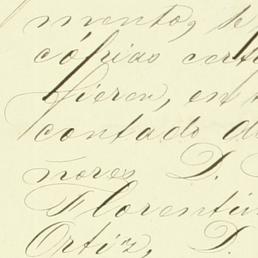 mento, se
cópias certi
fieren, en
contado d
ñores D.
Florentin
Ortiz, D.